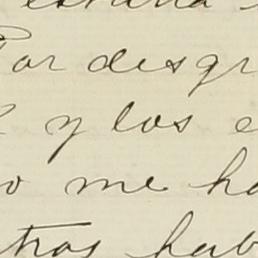 Por desgr
y los e
o me ha
tros hab